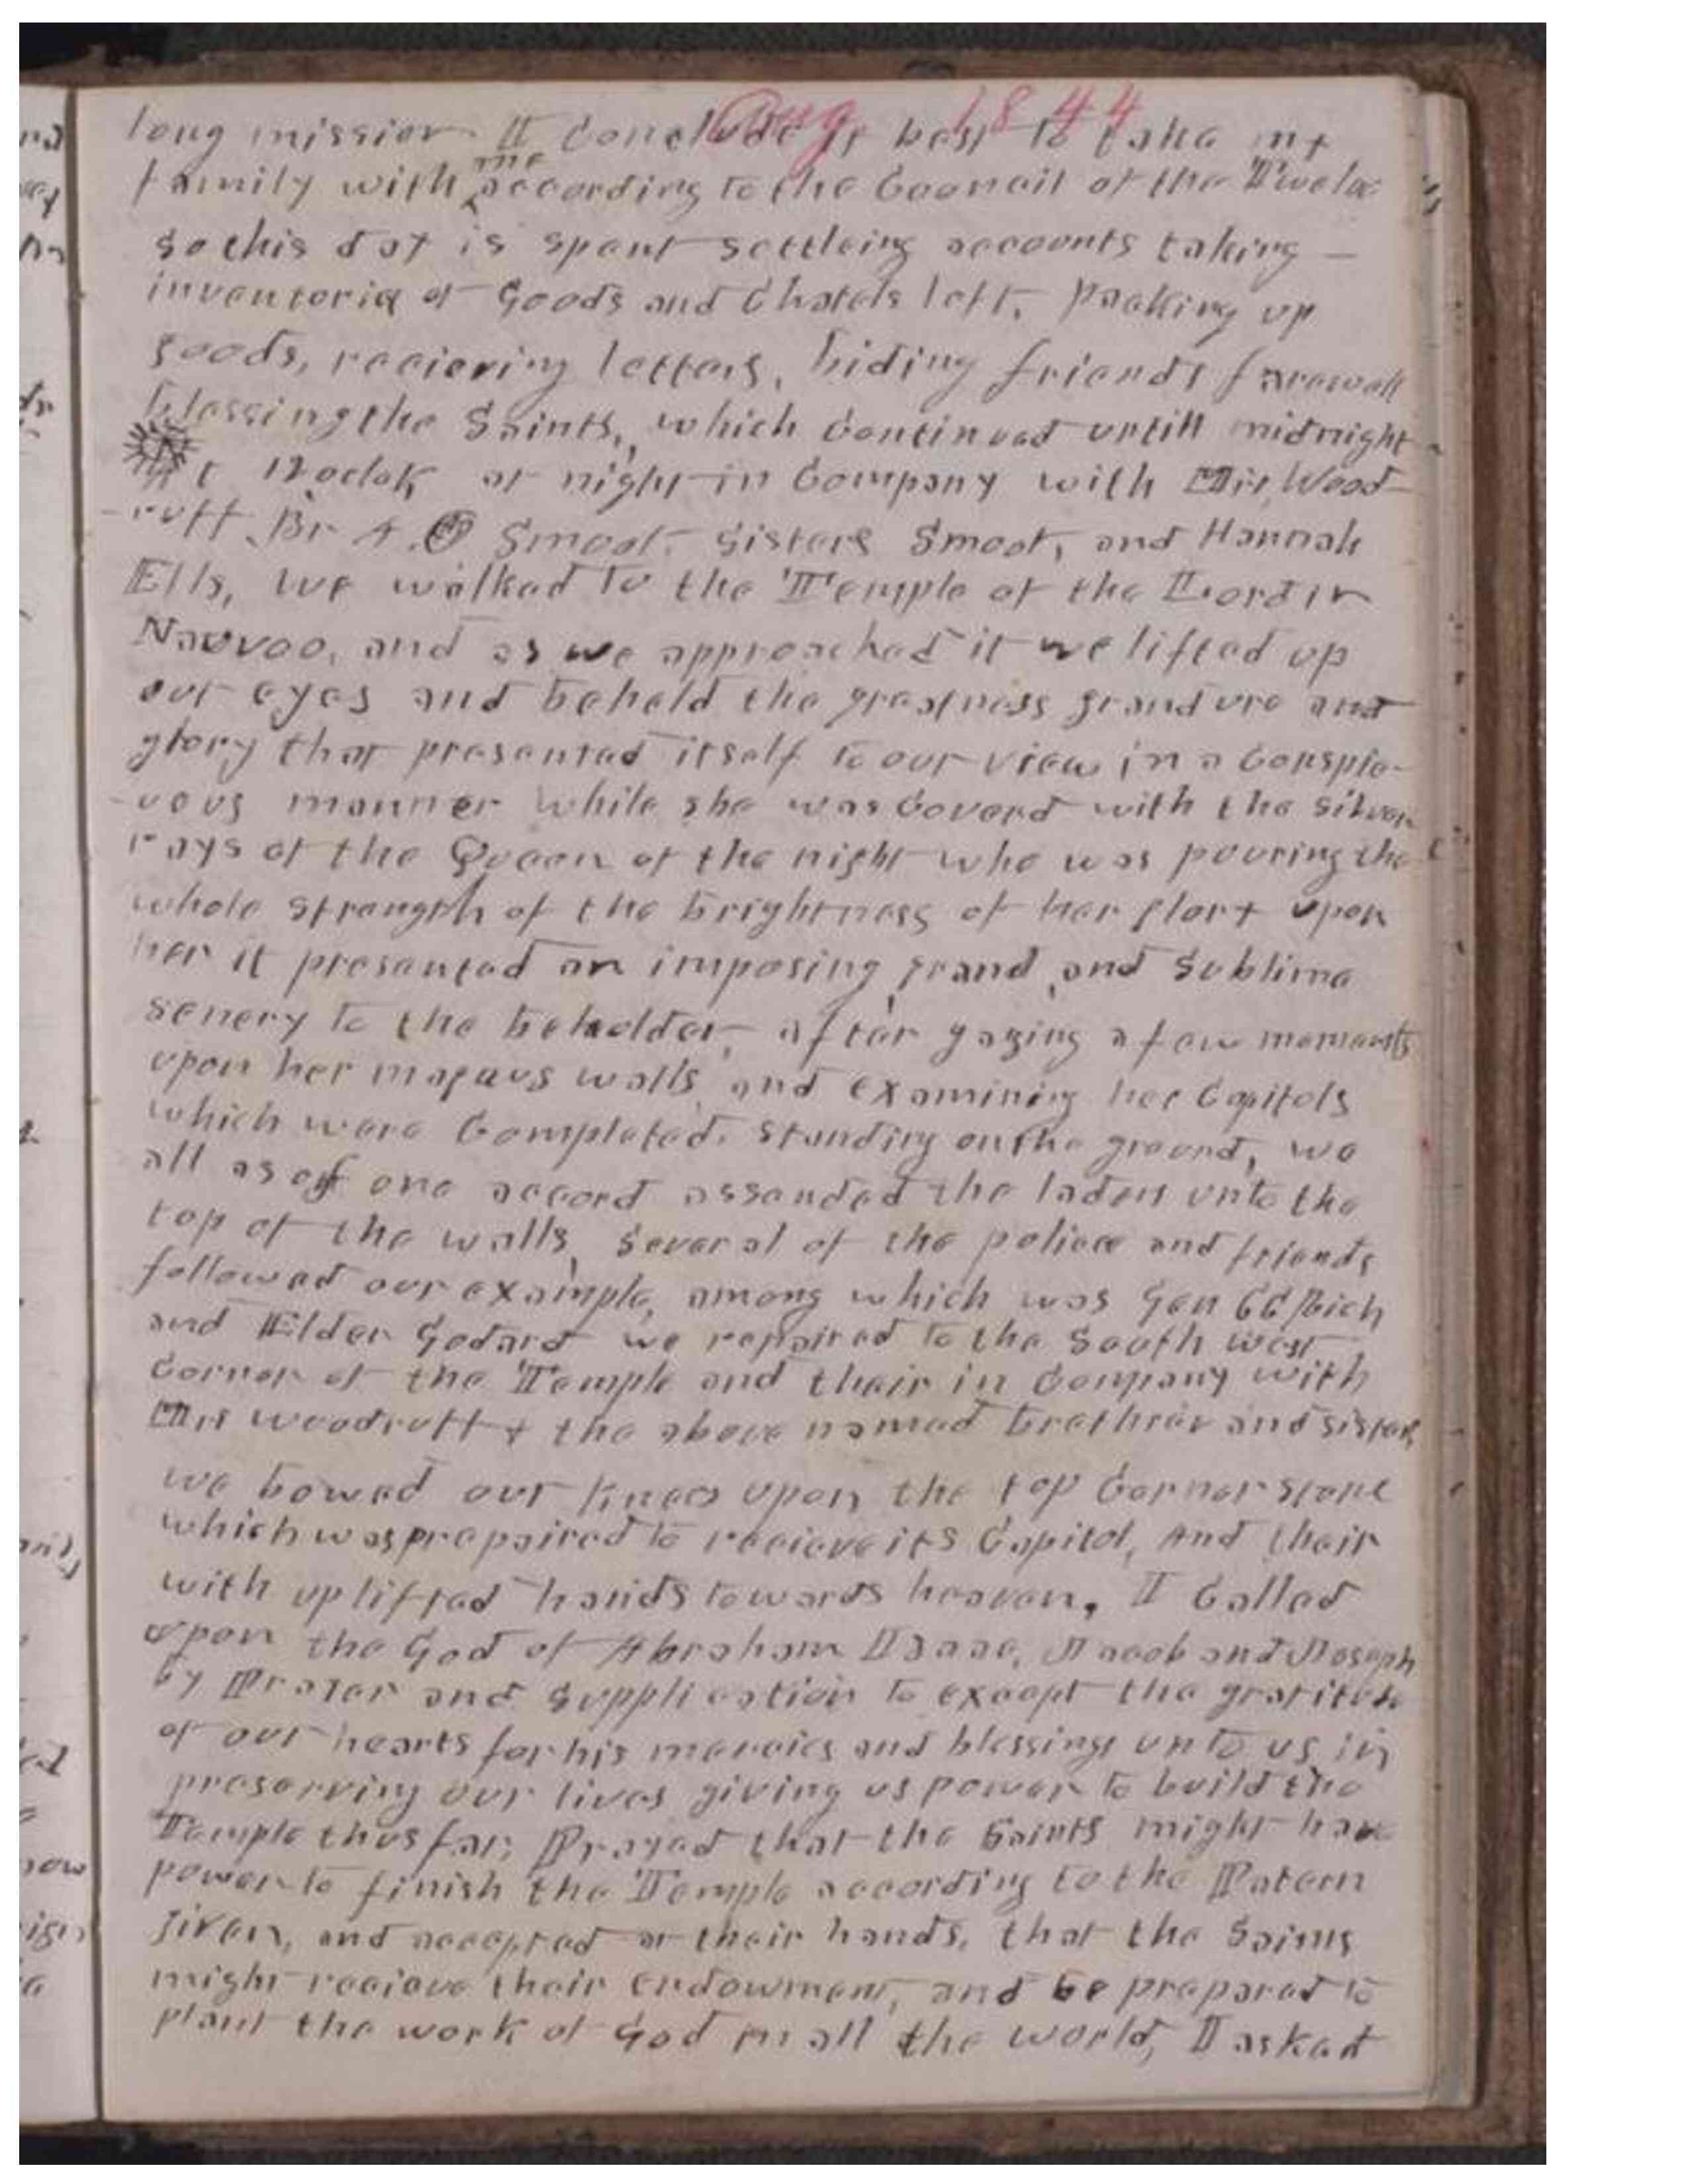 Aug 1844
long mission I Conclude is best to take my
family with me according to the Councill of the Twelve
so this day is spent settleing accounts taking
inventoria of Goods and Chatels left, packing up
goods, recieving letters, biding friends farewell
blessing the Saints, which Continued untill midnight
At 12 oclok at night in Company with Mrs Wood-
-ruff Br A. O Smoot. Sisters Smoot, and Hannah
Ells, we walked to the Temple of the Lord in
Nauvoo, and as we approached it we lifted up
our eyes and beheld the greatness grandure and
glory that presented itself to our view in a Conspic-
-uous manner while she was Coverd with the silver
rays of the Queen of the night who was pouring the
whole strength of the brightness of her glory upon
her it presented an imposing, grand, and Sublime
senery to the beholder, after gazing a few moments
upon her magaus walls, and examining her Capitols
which were Completed. standing on the ground, we
all as of one accord assended the laders unto the
top of the walls, several of the police and friends
followed our example, among which was Gen CC Rich
and Elder Godard we repaired to the South west
Corner of the Temple and their in Company with
Mrs Woodruff & the above named brethren and sisters
we bowed our knees upon the top Corner stone
which was prepaired to recieve its Capitol, And their
with uplifted hands towards heaven, I Called
upon the God of Abraham Isaac, Jacob and Joseph
by Prayer and Supplication to except the gratitude
of our hearts for his mercies and blessings unto us in
preserving our lives giving us power to build the
Temple thus far; Prayed that the Saints might have
power to finish the Temple according to the Patern
given, and accepted at their hands, that the Saints
might recieve their endowment, and be prepared to
plant the work of God in all the world, I asked